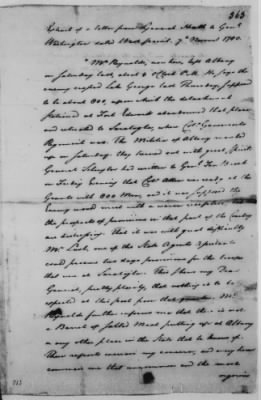 363
Extract of a letter from General Heath to Genl
Washington dated West point. 7th November 1780.
"Mr Reynolds, now here, left Albany
on Saturday last about 4 oClock P.M. He says the
enemy crossed Lake George last Thursday, supposed
to be about 800, upon which the detachment
stationed at Fort Edward abandoned that place,
and retreated to Saratoga, where Colo Gansevoorts
Regiment was. The Militia of Albany marched
up on Saturday. They turned out with great spirit
General Schuyler had written to General Ten Broeck
on Friday Evening that Colo Allen was ready at the
Grants with 800 Men, and it was supposed the
Enemy would meet with a warm reception, but
the prospects of provisions in that part of the Country
are distressing. that it was with great difficulty
Mr Lush one of the State Agents
could procure two days provisions for the troops
that were at Saratoga. This shews my Dear
General, pretty plainly, that nothing is to be
expected at this post from that quarter. Mr
Reynolds further informs me that there is not
a Barrel of salted Meat putting up at Albany
or any other place in the State that he knows of.
These reports increase my concern, and every hour
convinces me that